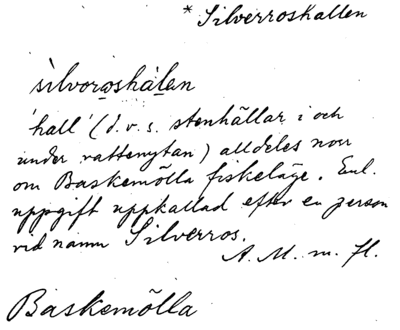 * Silverroshallen
sìlvorǫshàlen
'hall' (d.v.s. stenhällar i och
under vattenytan) alldeles norr
om Baskemölla fiskeläge. Enl.
uppgift uppkallad efter en person
vid namn Silverros.
A. M. m. fl.
Baskemölla